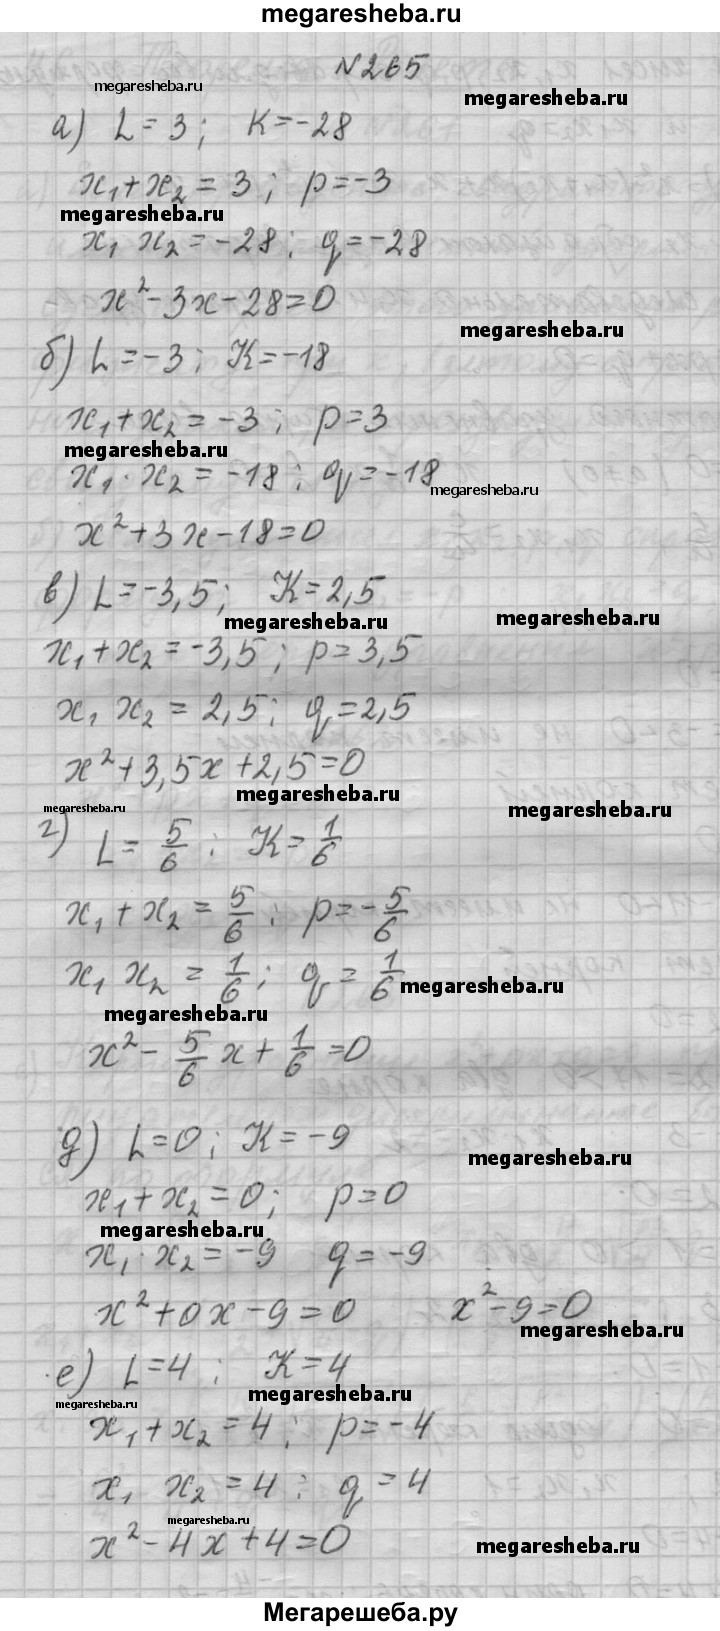 megaresheba.ru
N265
megaresheba.ru
megaresheba.ru
а) L = 3; K = -28
x₁ + x₂ = 3; p = -3
megaresheba.ru
x₁ x₂ = -28; q = -28
x² - 3x - 28 = 0
megaresheba.ru
б) L = -3; K = -18
x₁ + x₂ = -3; p = 3
megaresheba.ru
x₁ · x₂ = -18; q = -18
megaresheba.ru
x² + 3x - 18 = 0
в) L = -3,5; K = 2,5
megaresheba.ru
megaresheba.ru
x₁ + x₂ = -3,5; p = 3,5
x₁ x₂ = 2,5; q = 2,5
x² + 3,5x + 2,5 = 0
megaresheba.ru
megaresheba.ru
megaresheba.ru
г) L = 5/6; K = 1/6
x₁ + x₂ = 5/6; p = -5/6
x₁ x₂ = 1/6; q = 1/6
megaresheba.ru
megaresheba.ru
x² - 5/6 x + 1/6 = 0
д) L = 0; K = -9
megaresheba.ru
x₁ + x₂ = 0; p = 0
megaresheba.ru
x₁ · x₂ = -9 q = -9
x² + 0x - 9 = 0 x² - 9 = 0
megaresheba.ru
е) L = 4; K = 4
megaresheba.ru
megaresheba.ru
x₁ + x₂ = 4; p = -4
x₁ x₂ = 4; q = 4
megaresheba.ru
x² - 4x + 4 = 0
megaresheba.ru
Мегарешеба.ру